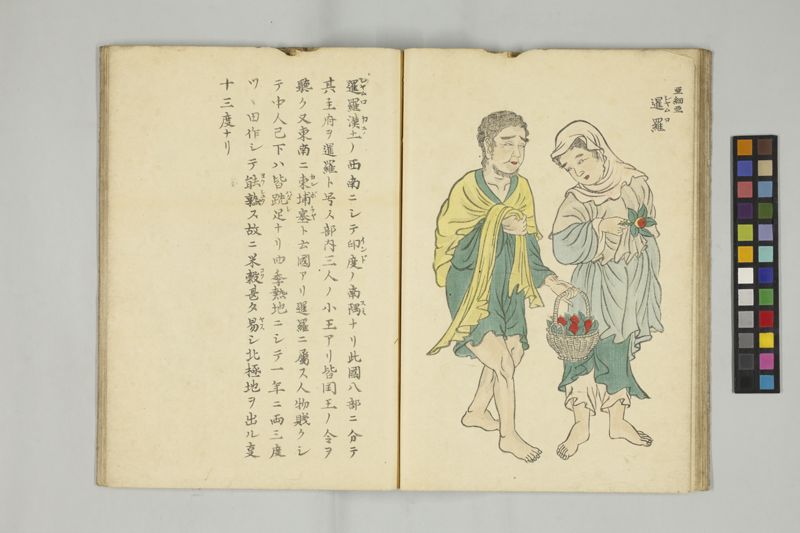 亜細亜
暹羅
シヤムロ
暹羅漢土ノ西南ニシテ印度ノ南隅ナリ此國八部ニ分テ
其主府ヲ暹羅ト号ス部内三人ノ小王アリ皆国王ノ令ヲ
聽ク又東南ニ東埔塞ト云國アリ暹羅ニ属ス人物賤クシ
テ中人已下ハ皆跣足ナリ四季熱地ニシテ一年ニ両三度
ツヽ田作シテ能熟ス故ニ米穀甚タ易シ北極地ヲ出ル夏
十三度ナリ